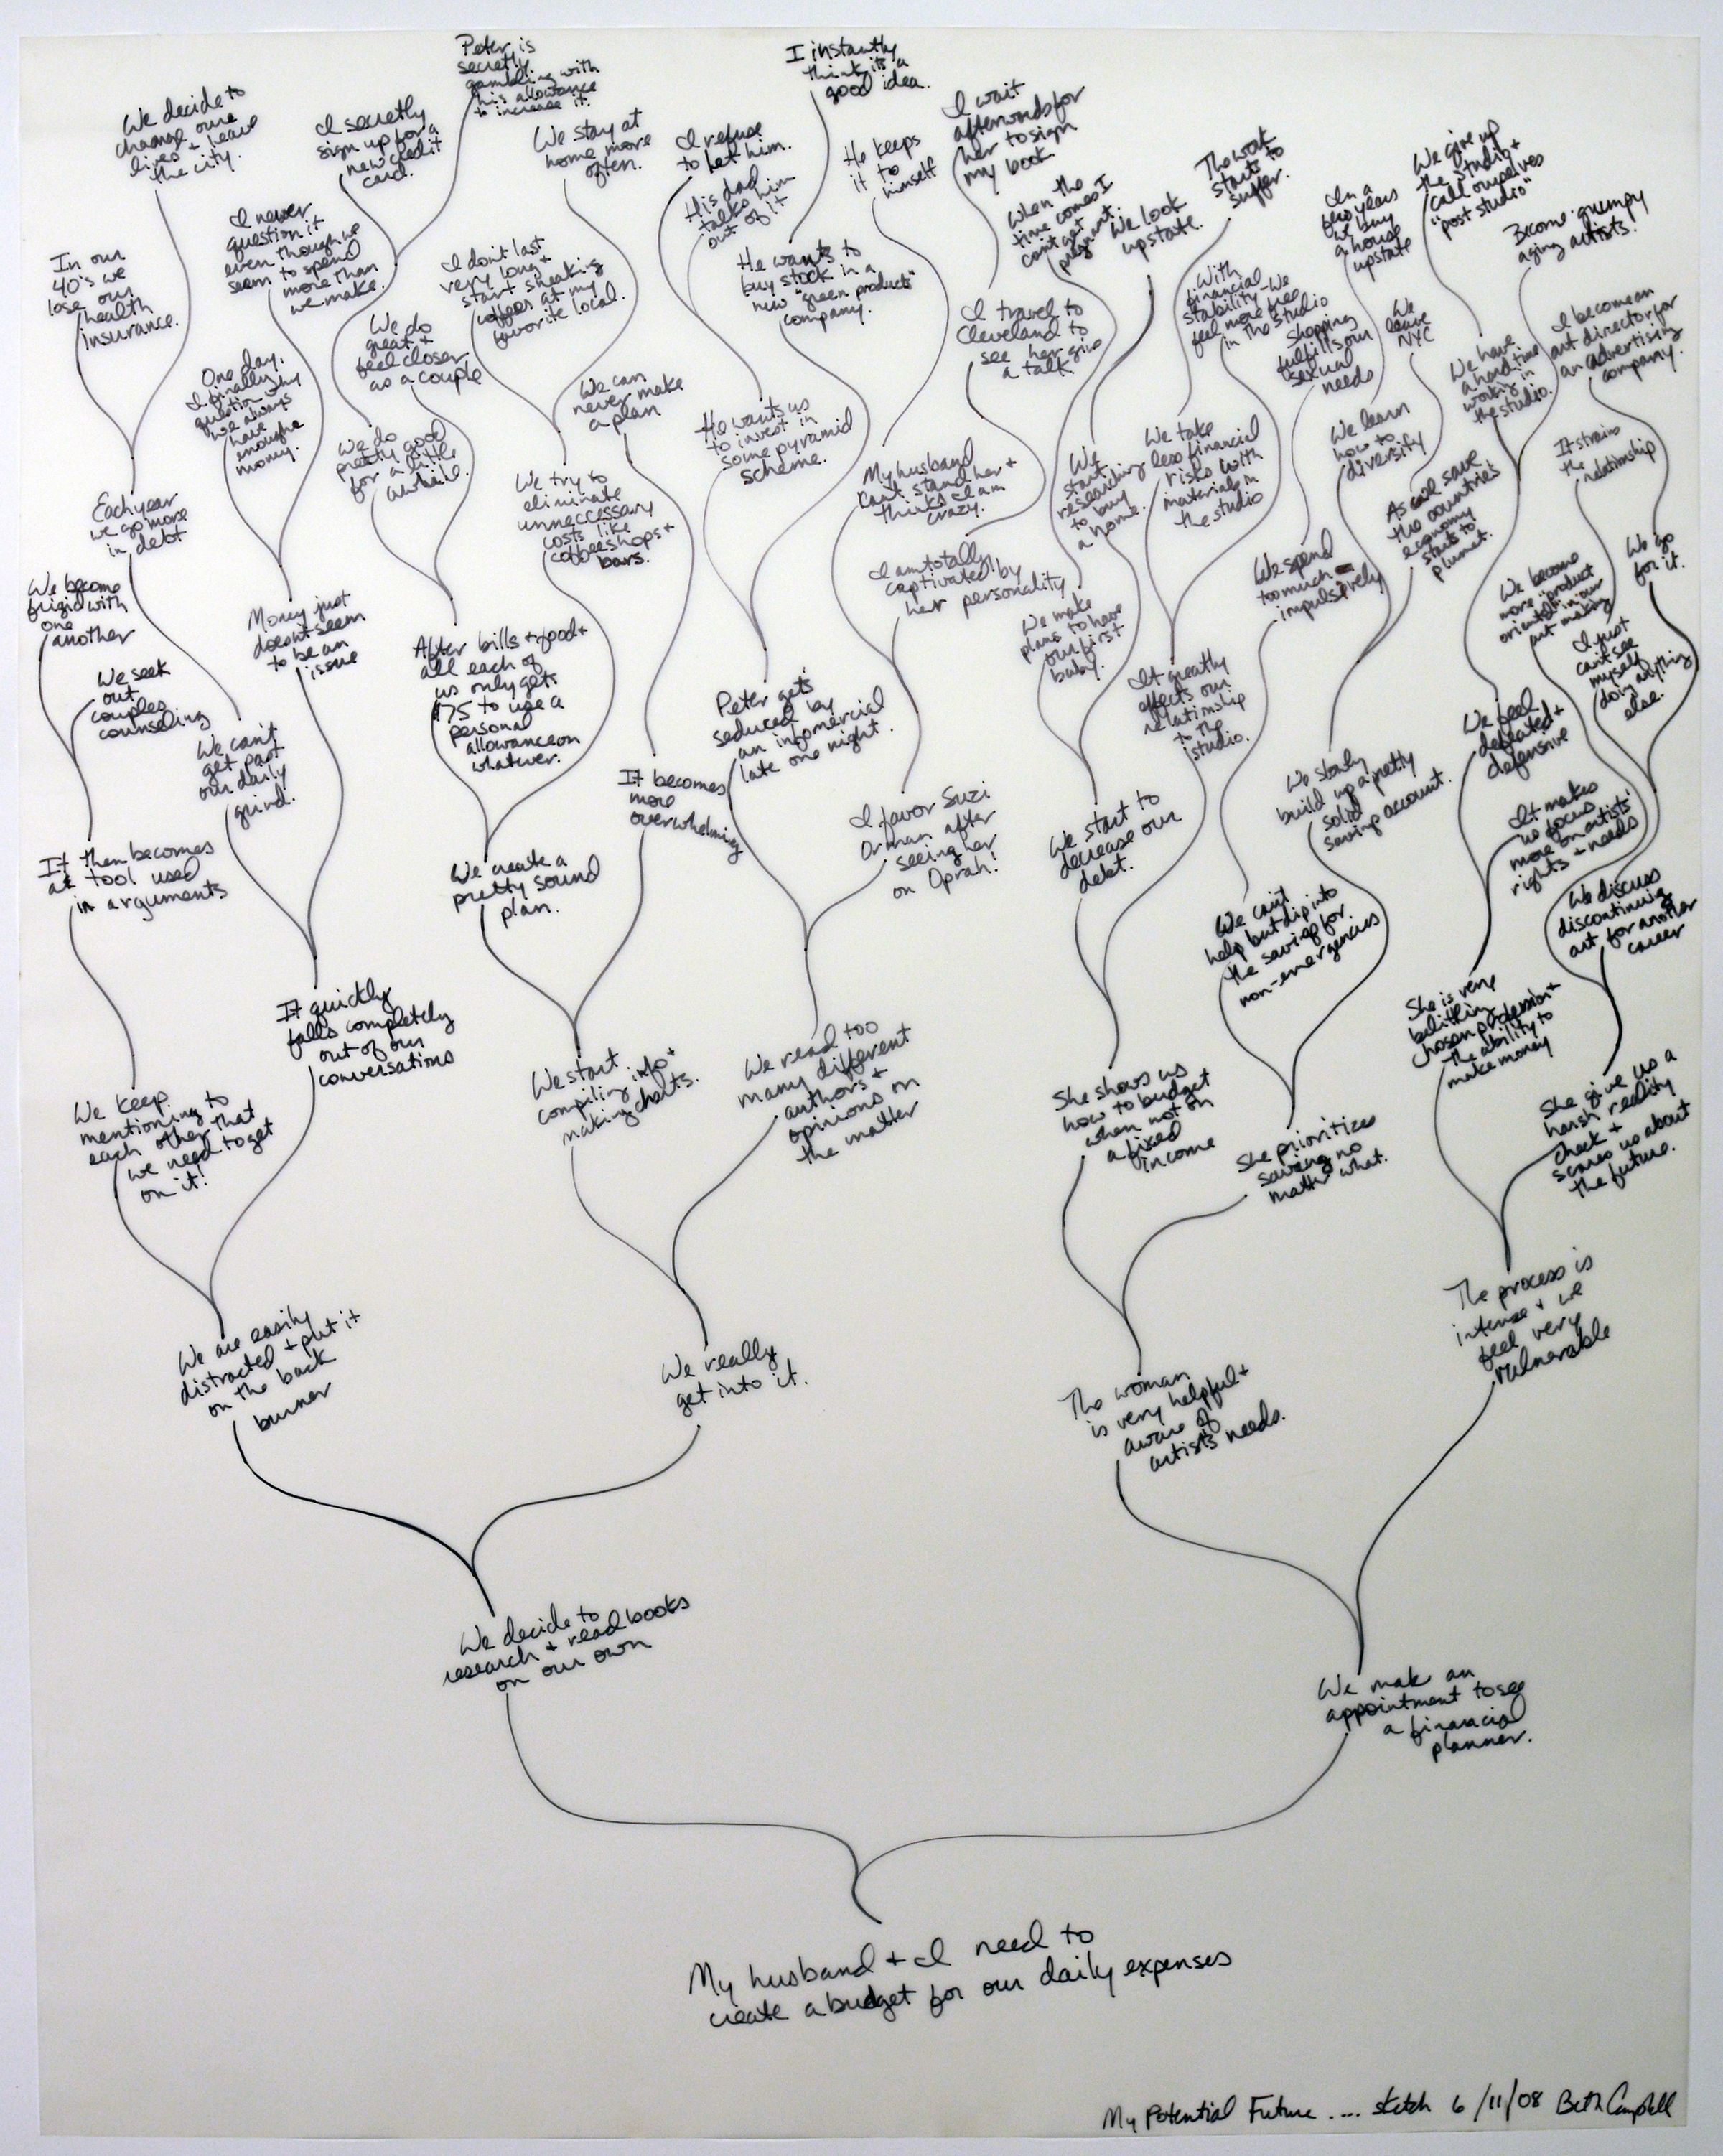 Peter is
secretly
gambling with
his allowance
to increase it.
I instantly
think its a
good idea.
We decide to
change our
lives + leave
the city.
I secretly
sign up for a
new credit
card.
We stay at
home more
often.
I refuse
to let him.
His dad
talks him
out of it
He keeps
it to
himself
I wait
afterwards for
her to sign
my book
When the
time comes I
can't get
pregnant.
We look
upstate.
The work
starts to
suffer.
In a
few years
we buy
a house
upstate
We give up
the studio +
call ourselves
"post studio"
Become grumpy
aging artists!
In our
40's we
lose our
health
insurance.
I never
question it
even though we
seem to spend
more than
we make.
We do
great +
feel closer
as a couple
I dont last
very long +
start sneaking
coffees at my
favorite local.
He wants to
buy stock in a
new "green products"
company.
I travel to
Cleveland to
see her give
a talk.
With
financial
stability - we
feel more free
in the studio
Shopping
fulfills our
sexual
needs
We
leave
NYC
We have
a hard time
working in
the studio.
I become an
art director for
an advertising
company.
One day,
I finally
question why
we always
have
enough
money.
We do
pretty good
for a little
awhile.
We can
never make
a plan
He wants us
to invest in
some pyramid
scheme.
My husband
can't stand her +
thinks I am
crazy.
We
start
researching
to buy
a home.
We take
less financial
risks with
materials in
the studio
We learn
how to
diversify
As we save
the countries
economy
starts to
plumet.
It strains
the
relationship
Each year
we go more
in debt
We try to
eliminate
unneccessary
costs like
coffeeshops +
bars.
I am totally
captivated by
her personality
We spend
too much
impulsively
We become
more "product
oriented" in our
art making
We go
for it.
We become
frigid with
one
another
Money just
doesn't seem
to be an
issue
After bills + food +
all each of
us only gets
$75 to use a
personal
allowance on
whatever.
We make
plans to have
our first
baby.
It greatly
affects our
relationship
to the
studio.
I just
can't see
myself
doing anything
else.
We seek
out
couples
counseling
We can't
get past
our daily
grind.
Peter gets
seduced by
an infomercial
late one night.
We feel
defeated +
defensive
It becomes
more
overwhelming
I favor Suzi
Orman after
seeing her
on Oprah!
We start to
decrease our
debt.
We slowly
build up a pretty
solid
saving account.
It makes
us focus
more on artists'
rights + needs
It then becomes
a tool used
in arguments
We create a
pretty sound
plan.
We can't
help but dip into
the saving for
non-emergencies
We discuss
discontinuing
art for another
career
It quickly
falls completely
out of our
conversations
She is very
belittling
chosen profession +
the ability to
make money
We keep
mentioning to
each other that
we need to get
on it!
We start
compiling info +
making charts.
We read too
many different
authors +
opinions on
the matter
She shows us
how to budget
when not on
a fixed
income
She prioritizes
saving no
matter what.
She give us a
harsh reality
check +
scares us about
the future.
We are easily
distracted + put it
on the back
burner
We really
get into it.
The woman
is very helpful +
aware of
artists needs.
The process is
intense + we
feel very
vulnerable
We decide to
research + read books
on our own
We make an
appointment to see
a financial
planner.
My husband + I need to
create a budget for our daily expenses
My Potential Future .... sketch 6/11/08 Beth Campbell